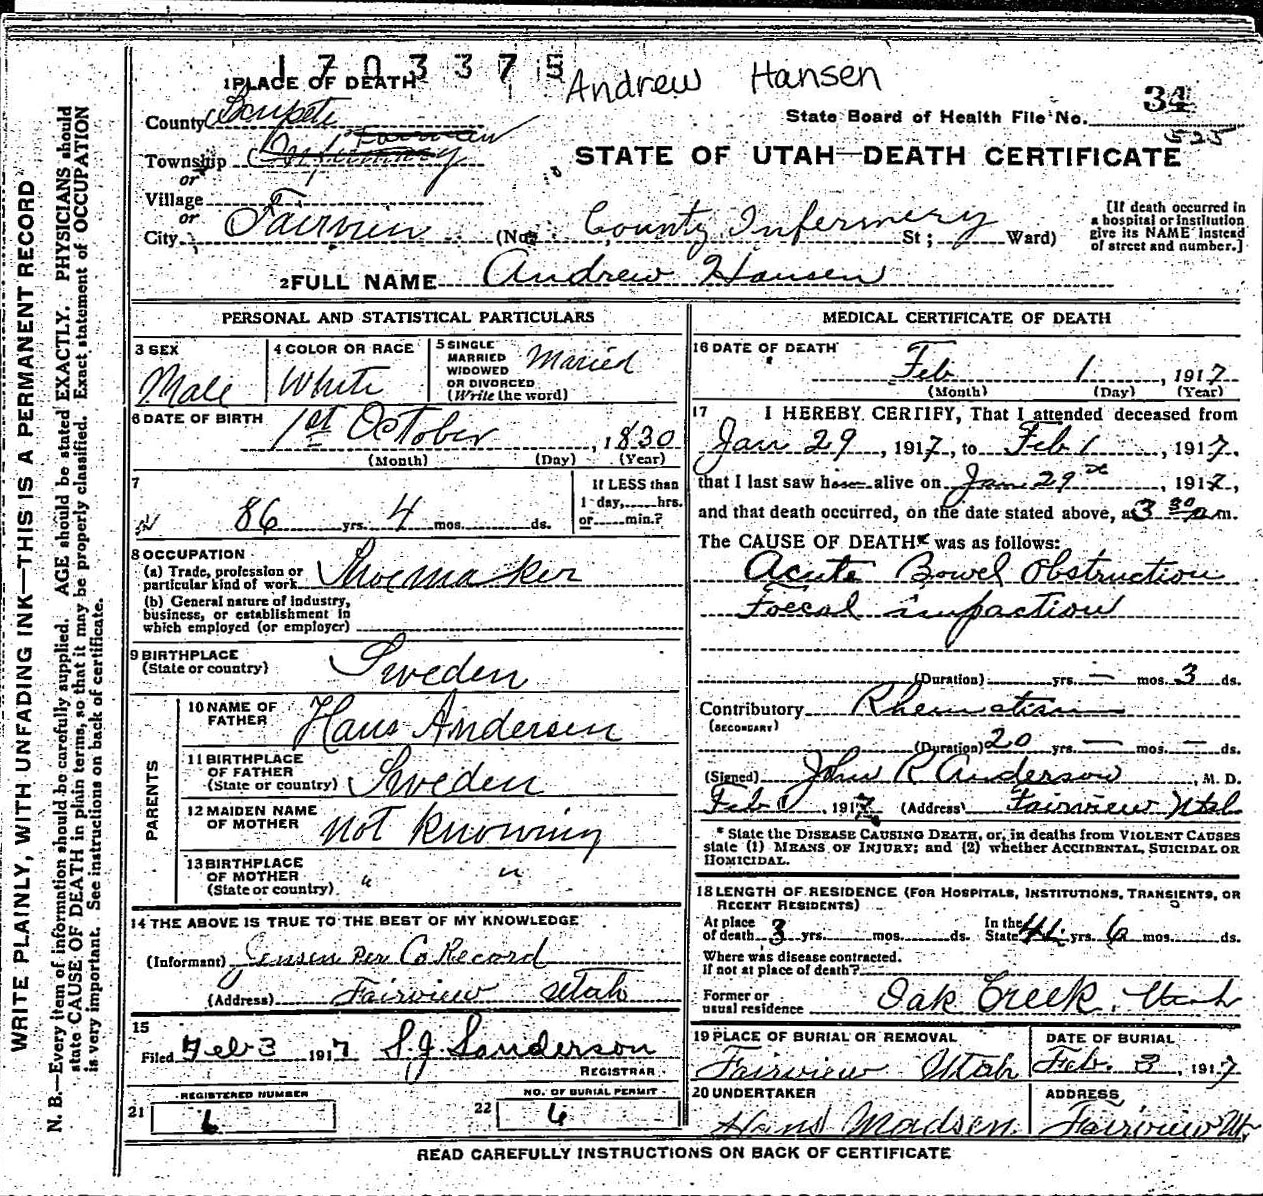 1703375
Andrew Hansen
34
1 PLACE OF DEATH
County Sanpete
State Board of Health File No.
525
Fairview
Township Infirmary
or
STATE OF UTAH—DEATH CERTIFICATE
Village
or
City Fairview (No. County Infermery St; Ward)
[If death occurred in
a hospital or institution
give its NAME instead
of street and number.]
2 FULL NAME Andrew Hansen
PERSONAL AND STATISTICAL PARTICULARS
3 SEX
Male
4 COLOR OR RACE
White
5 SINGLE
MARRIED
WIDOWED
OR DIVORCED
(Write the word)
Maried
6 DATE OF BIRTH
1st October, 1830
(Month) (Day) (Year)
7
86 yrs. 4 mos. ds.
If LESS than
1 day, hrs.
or min.?
8 OCCUPATION
(a) Trade, profession or
particular kind of work Shoemaker
(b) General nature of industry,
business, or establishment in
which employed (or employer)
9 BIRTHPLACE
(State or country) Sweden
PARENTS
10 NAME OF
FATHER Hans Andersen
11 BIRTHPLACE
OF FATHER
(State or country) Sweden
12 MAIDEN NAME
OF MOTHER not Knowing
13 BIRTHPLACE
OF MOTHER
(State or country) " "
14 THE ABOVE IS TRUE TO THE BEST OF MY KNOWLEDGE
(Informant) Jensen Per Co Record
(Address) Fairview Utah
15
Filed Feb 3 1917 S. J. Sanderson
REGISTRAR
REGISTERED NUMBER
21 6
NO. OF BURIAL PERMIT
22 6
MEDICAL CERTIFICATE OF DEATH
16 DATE OF DEATH
Feb 1, 1917
(Month) (Day) (Year)
17 I HEREBY CERTIFY, That I attended deceased from
Jan 29, 1917, to Feb 1, 1917,
that I last saw h alive on Jan 29, 1917,
and that death occurred, on the date stated above, at 3 30 a m.
The CAUSE OF DEATH* was as follows:
Acute Bowel Obstruction
Foecal impaction
(Duration) yrs. — mos. 3 ds.
Contributory Rheumatism
(SECONDARY)
(Duration) 20 yrs. — mos. — ds.
(Signed) John R Anderson, M. D.
Feb 1, 1917 (Address) Fairview Utah
* State the DISEASE CAUSING DEATH, or, in deaths from VIOLENT CAUSES
state (1) MEANS OF INJURY; and (2) whether ACCIDENTAL, SUICIDAL OR
HOMICIDAL.
18 LENGTH OF RESIDENCE (FOR HOSPITALS, INSTITUTIONS, TRANSIENTS, OR
RECENT RESIDENTS)
At place
of death 3 yrs. mos. ds.
In the
State yrs. 6 mos. ds.
Where was disease contracted.
if not at place of death?
Former or
usual residence Oak Creek, Utah
19 PLACE OF BURIAL OR REMOVAL
Fairview Utah
DATE OF BURIAL
Feb. 3, 1917
20 UNDERTAKER
Hans Madsen
ADDRESS
Fairview Ut,
READ CAREFULLY INSTRUCTIONS ON BACK OF CERTIFICATE
WRITE PLAINLY, WITH UNFADING INK—THIS IS A PERMANENT RECORD
N. B.—Every item of information should be carefully supplied. AGE should be stated EXACTLY. PHYSICIANS should
state CAUSE OF DEATH in plain terms, so that it may be properly classified. Exact statement of OCCUPATION
is very important. See instructions on back of certificate.